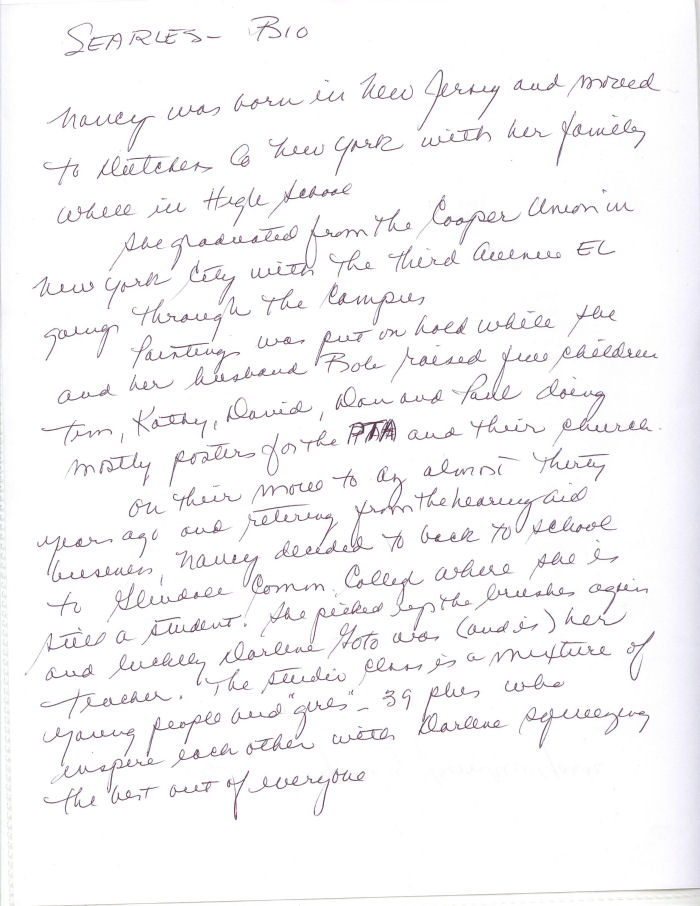 SEARLES - BIO
Nancy was born in New Jersey and moved
to Dutchess Co New York with her family
while in High School
She graduated from the Cooper Union in
New York City with the Third Avenue EL
going through the Campus
Painting was put on hold while she
and her husband Bob raised five children
Tim, Kathy, David, Dan and Paul doing
mostly posters for the PTA and their church.
On their move to AZ almost thirty
years ago and retiring from the hearing aid
business, Nancy decided to back to school
to Glendale Comm. College where she is
still a student. She picked up the brushes again
and luckily Darlene Goto was (and is) her
teacher. The studio class is a mixture of
young people and "girls" - 39 plus who
inspire each other with Darlene squeezing
the best out of everyone